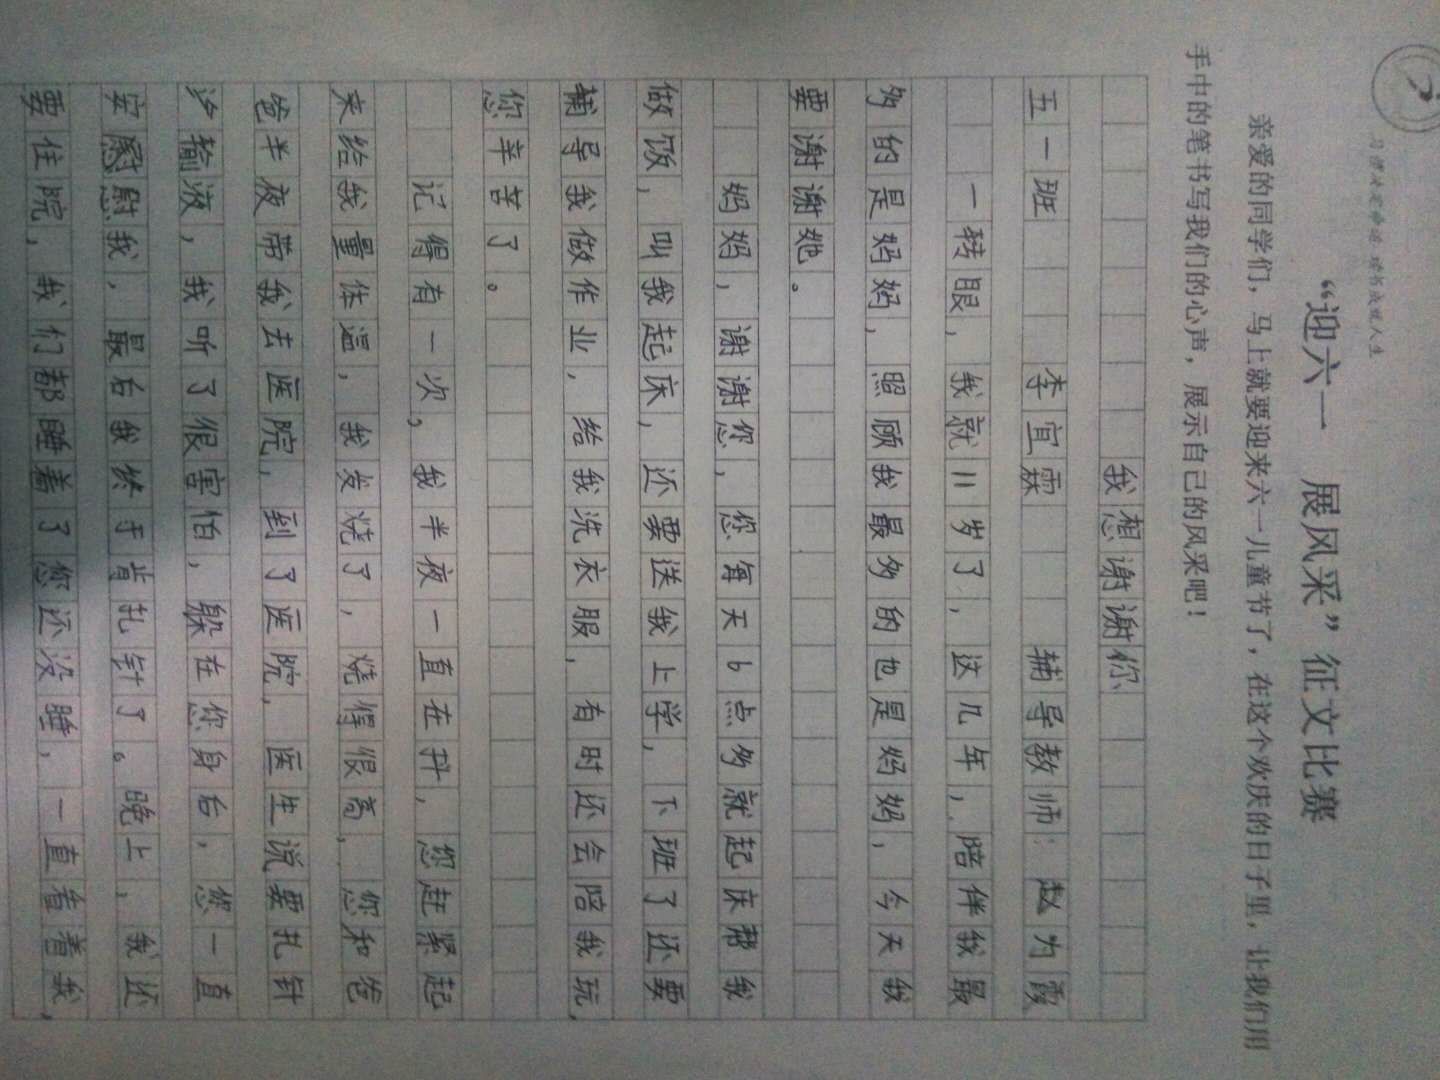 习惯决定命运 读书成就人生
“迎六一 展风采”征文比赛
亲爱的同学们，马上就要迎来六一儿童节了，在这个欢庆的日子里，让我们用
手中的笔书写我们的心声，展示自己的风采吧！
我想谢谢你
五一班 李宜霖 辅导教师：赵为霞
一转眼，我就11岁了，这几年，陪伴我最
多的是妈妈，照顾我最多的也是妈妈，今天我
要谢谢她。
妈妈，谢谢您，您每天6点多就起床帮我
做饭，叫我起床，还要送我上学，下班了还要
辅导我做作业，给我洗衣服，有时还会陪我玩，
您辛苦了。
记得有一次，我半夜一直在抖，您赶紧起
来给我量体温，我发烧了，烧得很高，您和爸
爸半夜带我去医院，到了医院，医生说要扎针
输液，我听了很害怕，躲在您身后，您一直
安慰我，最后我终于肯扎针了。晚上，我还
要住院，我们都睡着了您还没睡，一直看着我，